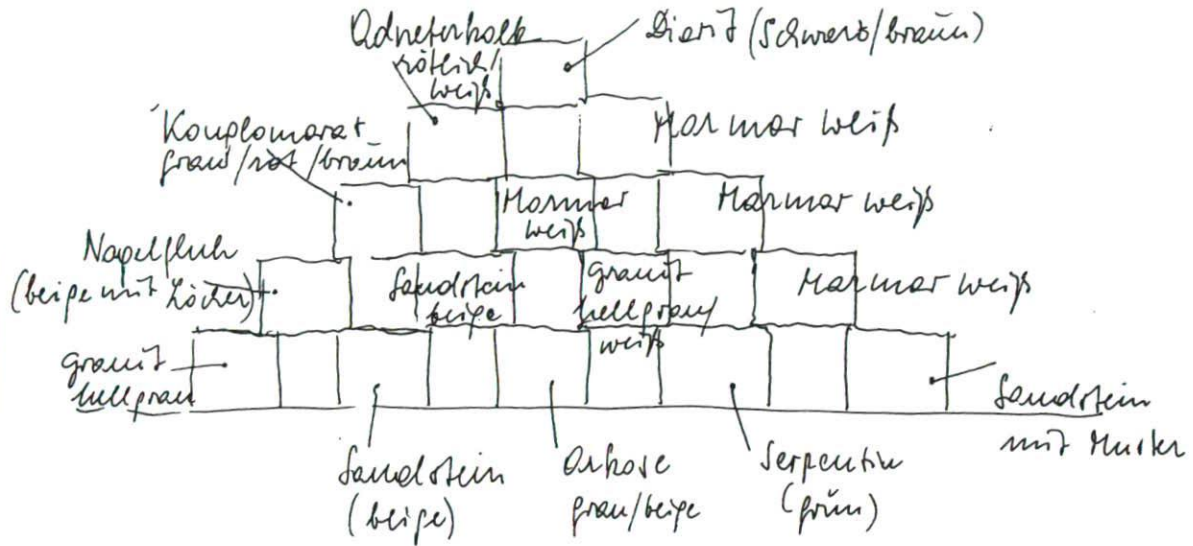 Adneterkalk
rötlich/
weiß
Diorit (schwarz/braun)
Konglomarat
grau/rot/braun
Marmor weiß
Marmor
weiß
Marmor weiß
Nagelfluh
(beige mit Löcher)
Sandstein
beige
granit
hellgrau/
weiß
Marmor weiß
granit
hellgrau
Sandstein
(beige)
Arkose
grau/beige
Serpentin
(grün)
Sandstein
mit Muster